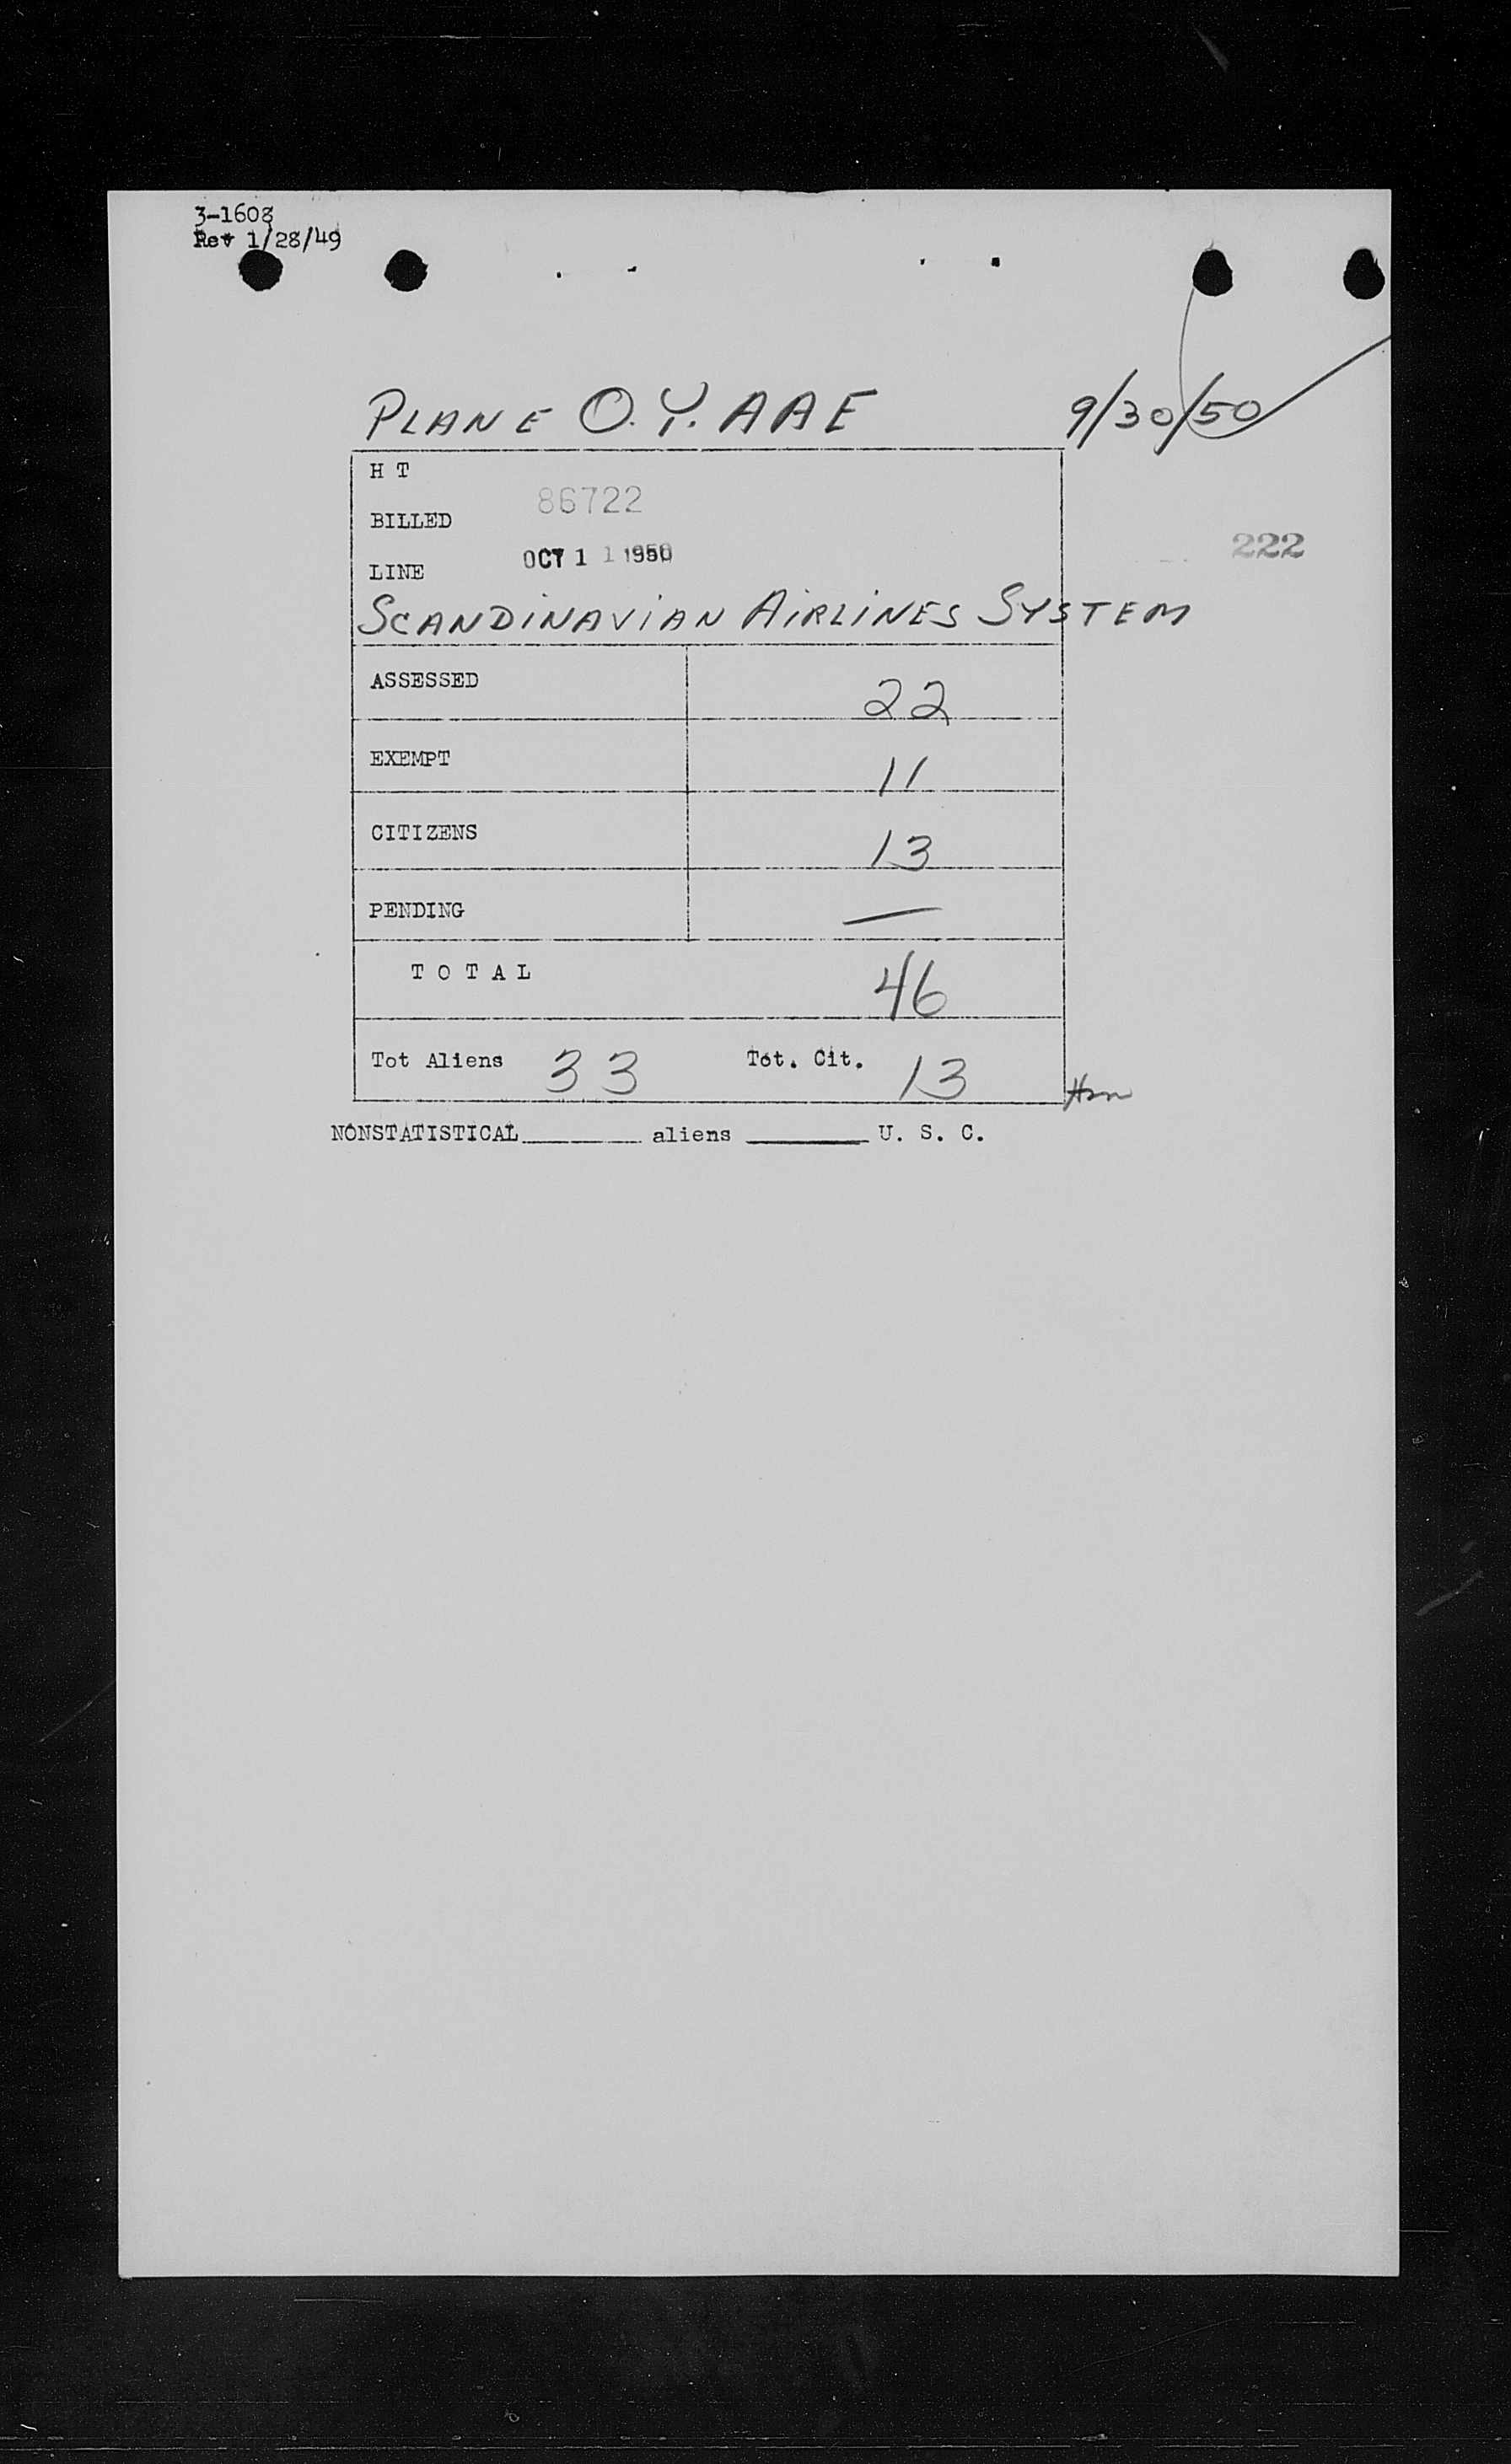 3-1608
Rev 1/28/49
PLANE O.Y. AAE 9/30/50
H T
86722
BILLED
222
OCT 1 1 1950
LINE
SCANDINAVIAN AIRLINES SYSTEM
ASSESSED 22
EXEMPT 11
CITIZENS 13
PENDING —
TOTAL 46
Tot Aliens 33 Tot. Cit. 13
NONSTATISTICAL________ aliens ________ U. S. C.